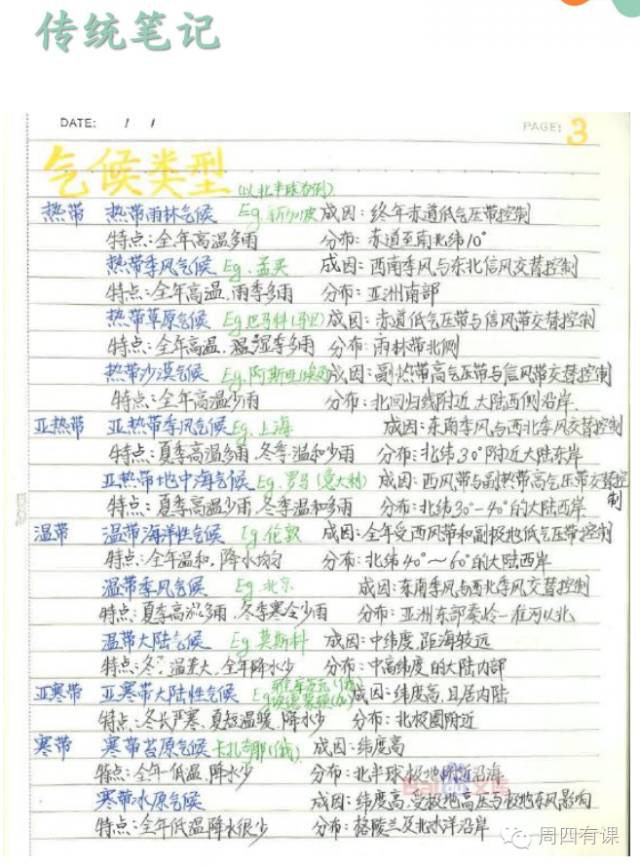 传统笔记
DATE: 1 1 PAGE: 3
气候类型 (以北半球为例)
热带 热带雨林气候 Eg.新加坡 成因:终年赤道低气压带控制
特点:全年高温多雨 分布:赤道至南北纬10°
热带季风气候 Eg.孟买 成因:西南季风与东北信风交替控制
特点:全年高温,雨季多雨 分布:亚洲南部
热带草原气候 Eg.巴马科(马里) 成因:赤道低气压带与信风带交替控制
特点:全年高温,湿季多雨 分布:雨林带北侧
热带沙漠气候 Eg.阿斯旺(埃及) 成因:副热带高气压带与信风带交替控制
特点:全年高温少雨 分布:北回归线附近大陆西侧沿岸
亚热带 亚热带季风气候 Eg.上海 成因:东南季风与西北季风交替控制
特点:夏季高温多雨,冬季温和少雨 分布:北纬30°附近大陆东岸
亚热带地中海气候 Eg.罗马(意大利) 成因:西风带与副热带高气压带交替控制
特点:夏季高温少雨,冬季温和多雨 分布:北纬30°-40°的大陆西岸
温带 温带海洋性气候 Eg.伦敦 成因:全年受西风带和副极地低气压带控制
特点:全年温和,降水均匀 分布:北纬40°~60°的大陆西岸
温带季风气候 Eg.北京 成因:东南季风与西北季风交替控制
特点:夏季高温多雨,冬季寒冷少雨 分布:亚洲东部秦岭—淮河以北
温带大陆气候 Eg.莫斯科 成因:中纬度,距海较远
特点:冬,温差大,全年降水少 分布:中高纬度的大陆内部
亚寒带 亚寒带大陆性气候 Eg. 成因:纬度高,且居内陆
特点:冬长严寒,夏短温暖,降水少 分布:北极圈附近
寒带 寒带苔原气候 卡扎奇耶(俄) 成因:纬度高
特点:全年低温,降水少 分布:北半球极地附近沿海
寒带冰原气候 成因:纬度高,受极地高压与极地东风影响
特点:全年低温降水很少 分布:格陵兰及北冰洋沿岸
周四有课